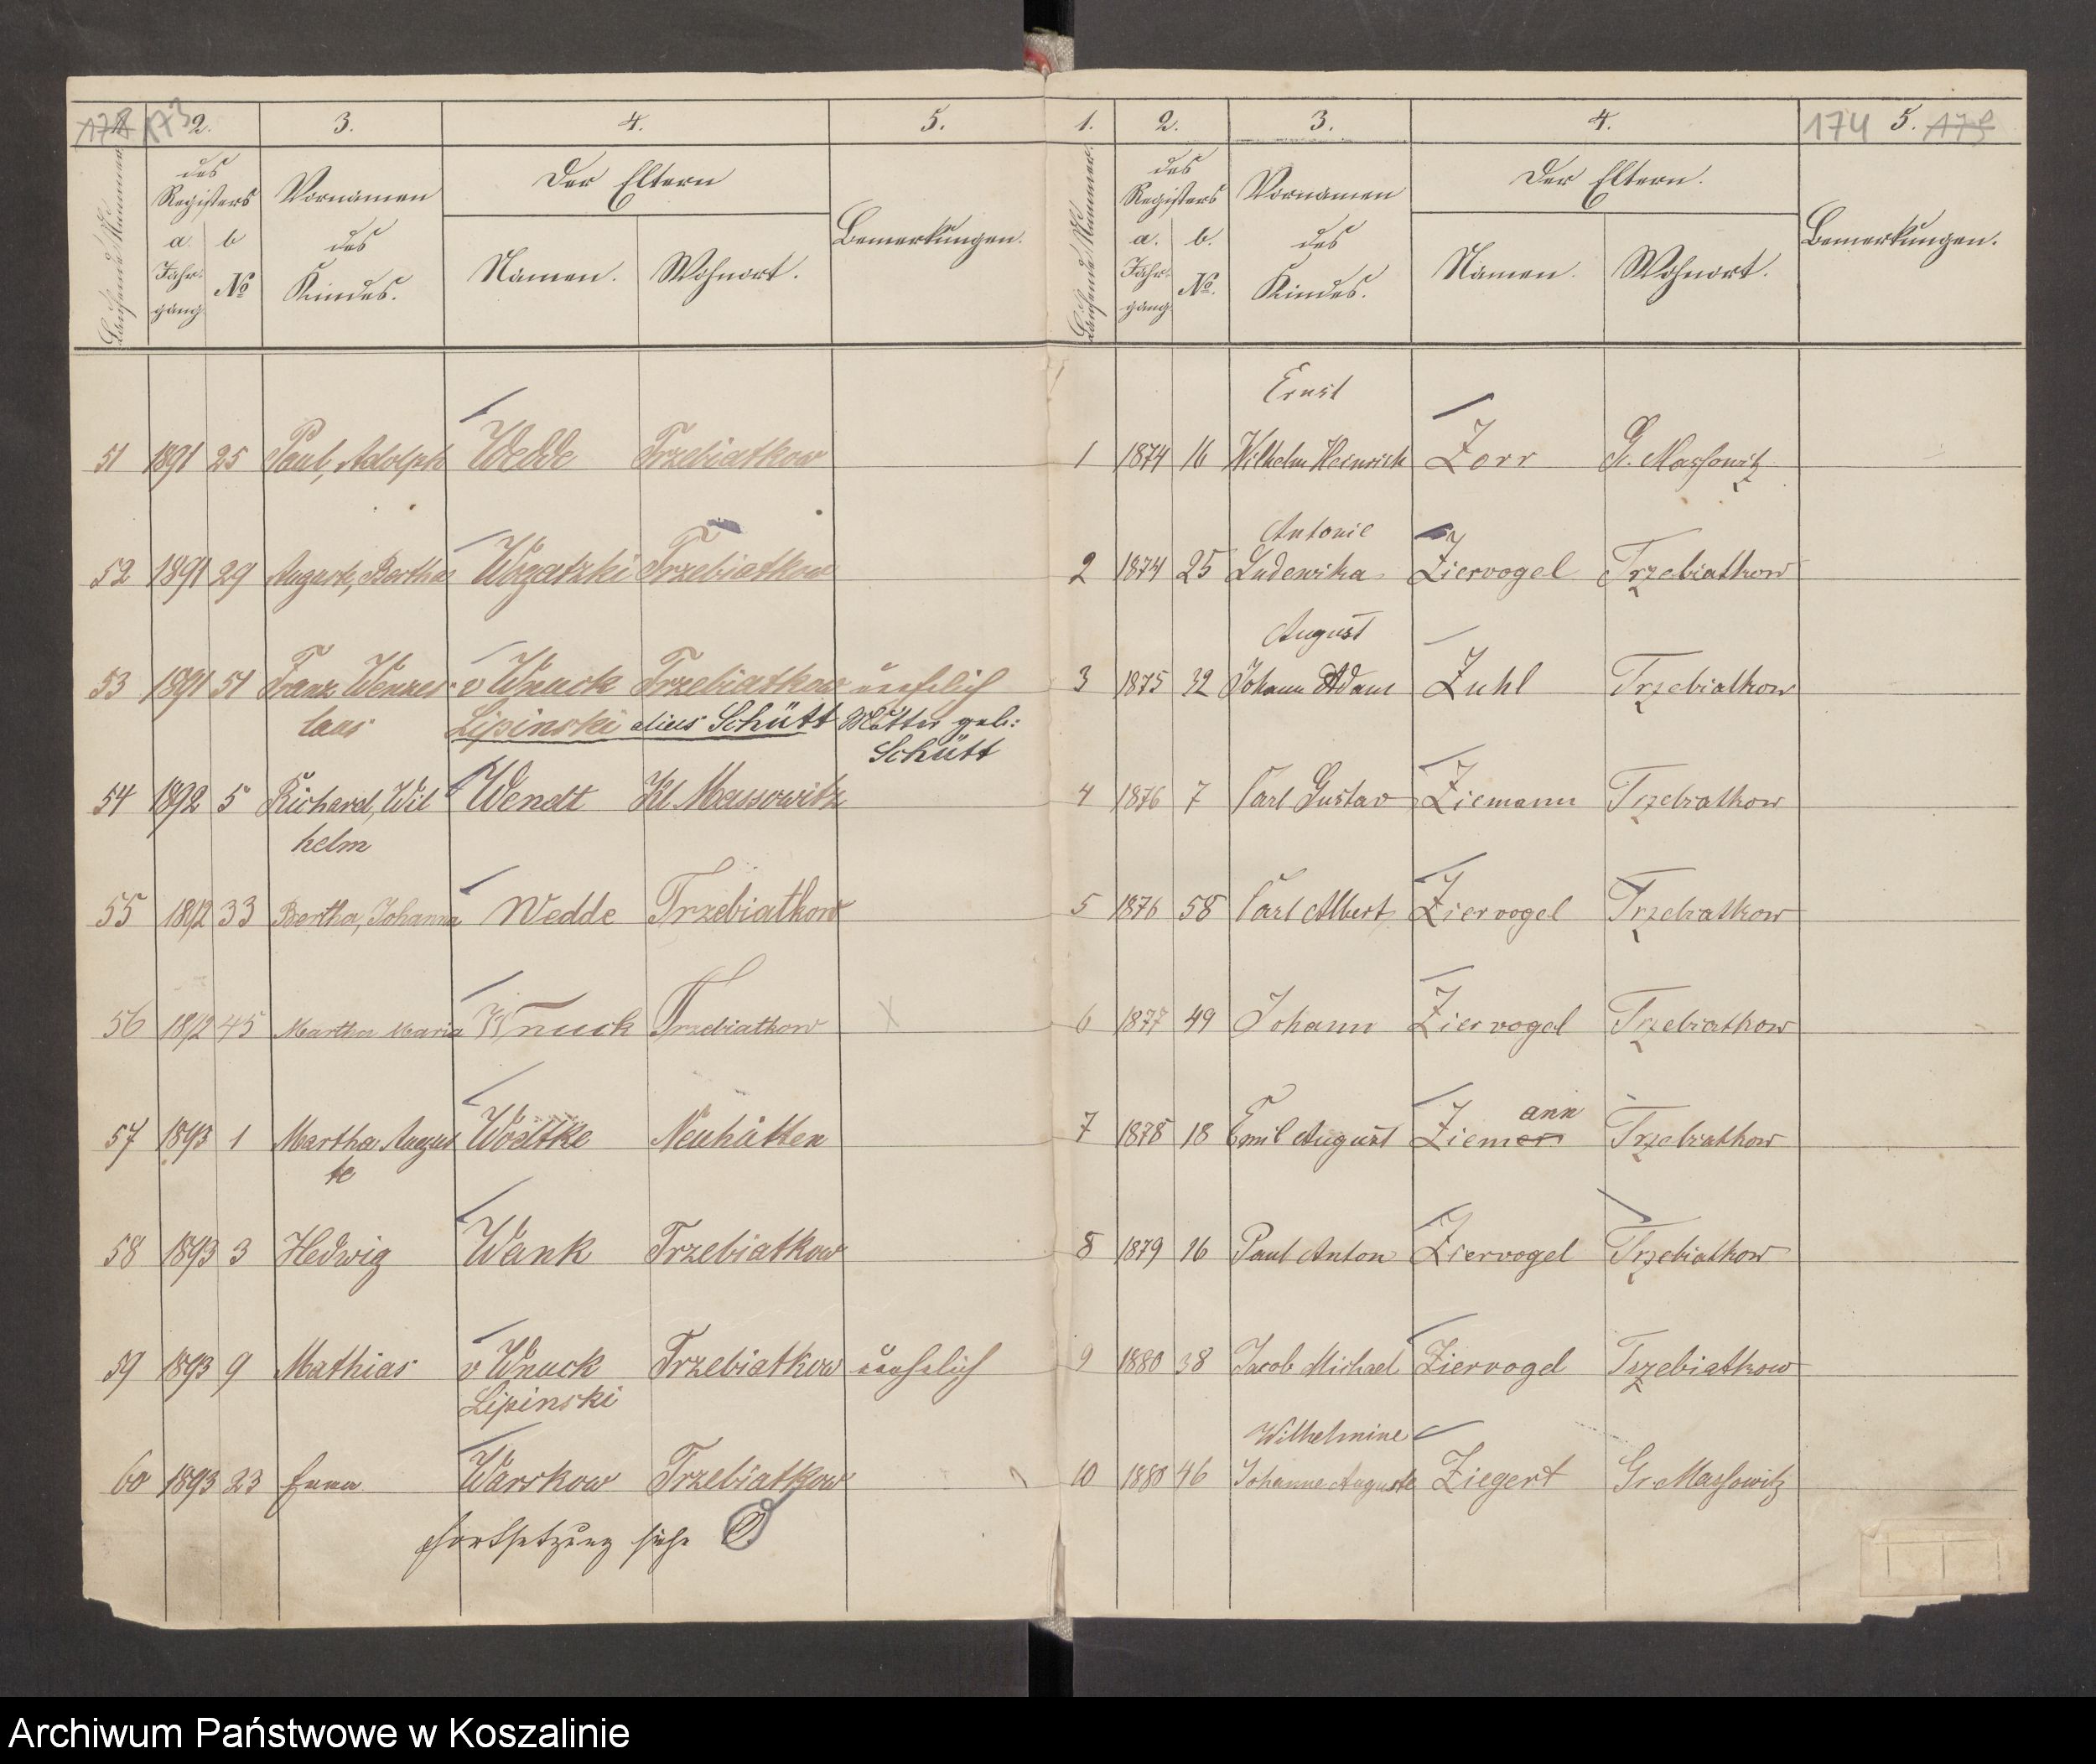 173 2. 3. 4. 5.
Laufende Nummer.
des Registers
a. Jahrgang
b №
Vornamen des Kindes.
Der Eltern
Namen. Wohnort.
Bemerkungen.
51 1891 25 Paul, Adolph Wedde Trzebiatkow
52 1891 29 August, Bertha Wogatzki Trzebiatkow
53 1891 51 Franz Wenzes v Wnuck Trzebiatkow unehelich
laus Lipinski alias Schütt Mutter geb:
Schütt
54 1892 5 Richard, Wil Wendt Kl Massowitz
helm
55 1892 33 Bertha, Johanna Wedde Trzebiatkow
56 1892 45 Martha Maria Wnuck Trzebiatkow X
57 1893 1 Martha Augus Woedtke Neuhütten
te
58 1893 3 Hedwig Wank Trzebiatkow
59 1893 9 Mathias v Wnuck Trzebiatkow unehelich
Lipinski
60 1893 23 Warskow Trzebiatkow
Fortsetzung siehe
1. 2. 3. 4. 174 5. 175
Laufende Nummer.
des Registers
a. Jahrgang
b. №.
Vornamen des Kindes.
Der Eltern.
Namen. Wohnort.
Bemerkungen.
Ernst
1 1874 16 Wilhelm Heinrich Zorr Gr. Massowitz
Antonie
2 1874 25 Ludewika Ziervogel Trzebiatkow
August
3 1875 32 Johann Adam Zuhl Trzebiatkow
4 1876 7 Carl Gustav Ziemann Trzebiatkow
5 1876 58 Carl Albert Ziervogel Trzebiatkow
6 1877 49 Johann Ziervogel Trzebiatkow
ann
7 1878 18 Emil August Ziemer Trzebiatkow
8 1879 16 Paul Anton Ziervogel Trzebiatkow
9 1880 38 Jacob Michael Ziervogel Trzebiatkow
Wilhelmine
10 1880 46 Johanne Auguste Ziegert Gr. Massowitz
Archiwum Państwowe w Koszalinie